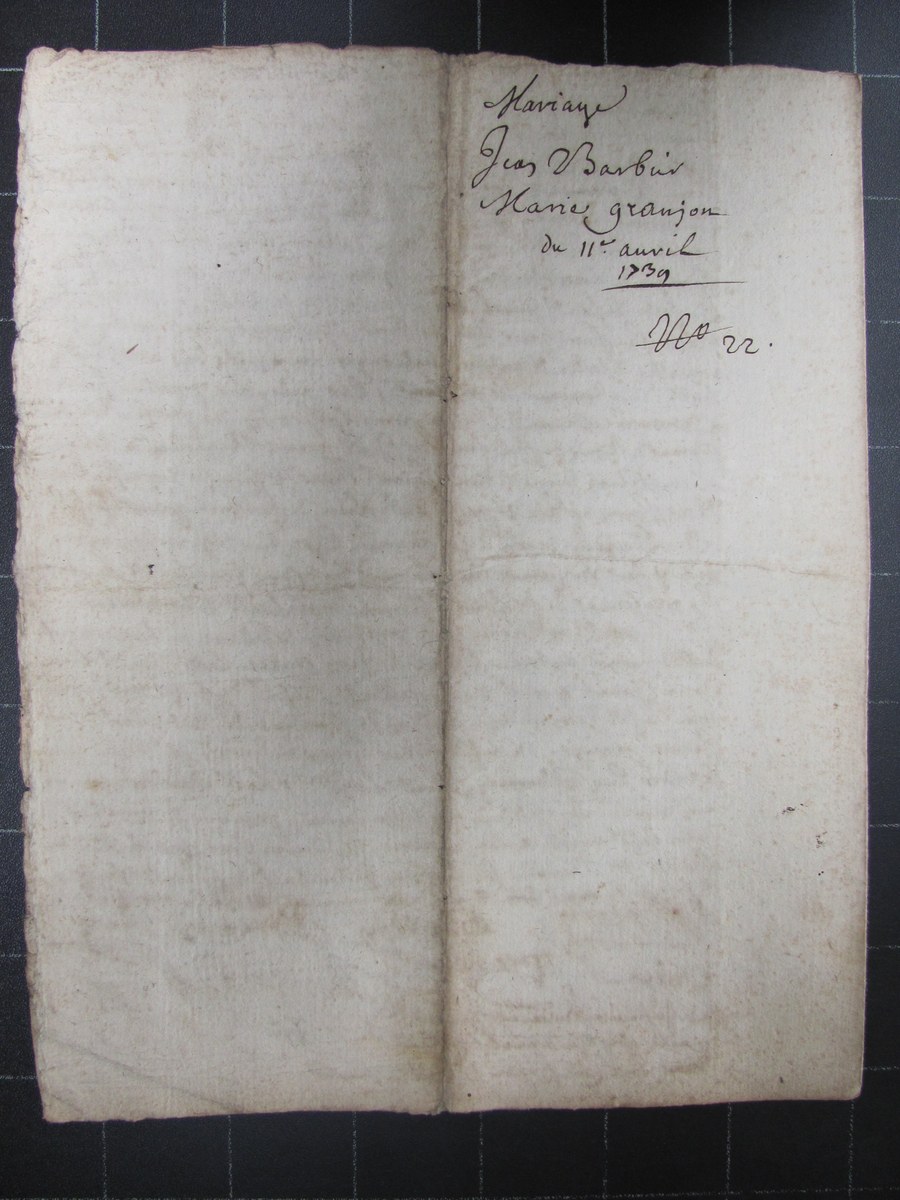 Mariage
Jean Barbier
Marie granjon
du 11e auril
1739
No 22.